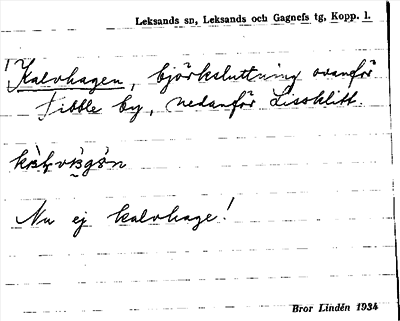 Leksands sn, Leksands och Gagnefs tg, Kopp. l.
Kalvhagen, björksluttning ovanför
Tibble by, nedanför Lissklitt.
Nu ej kalvhage!
Bror Lindén 1934